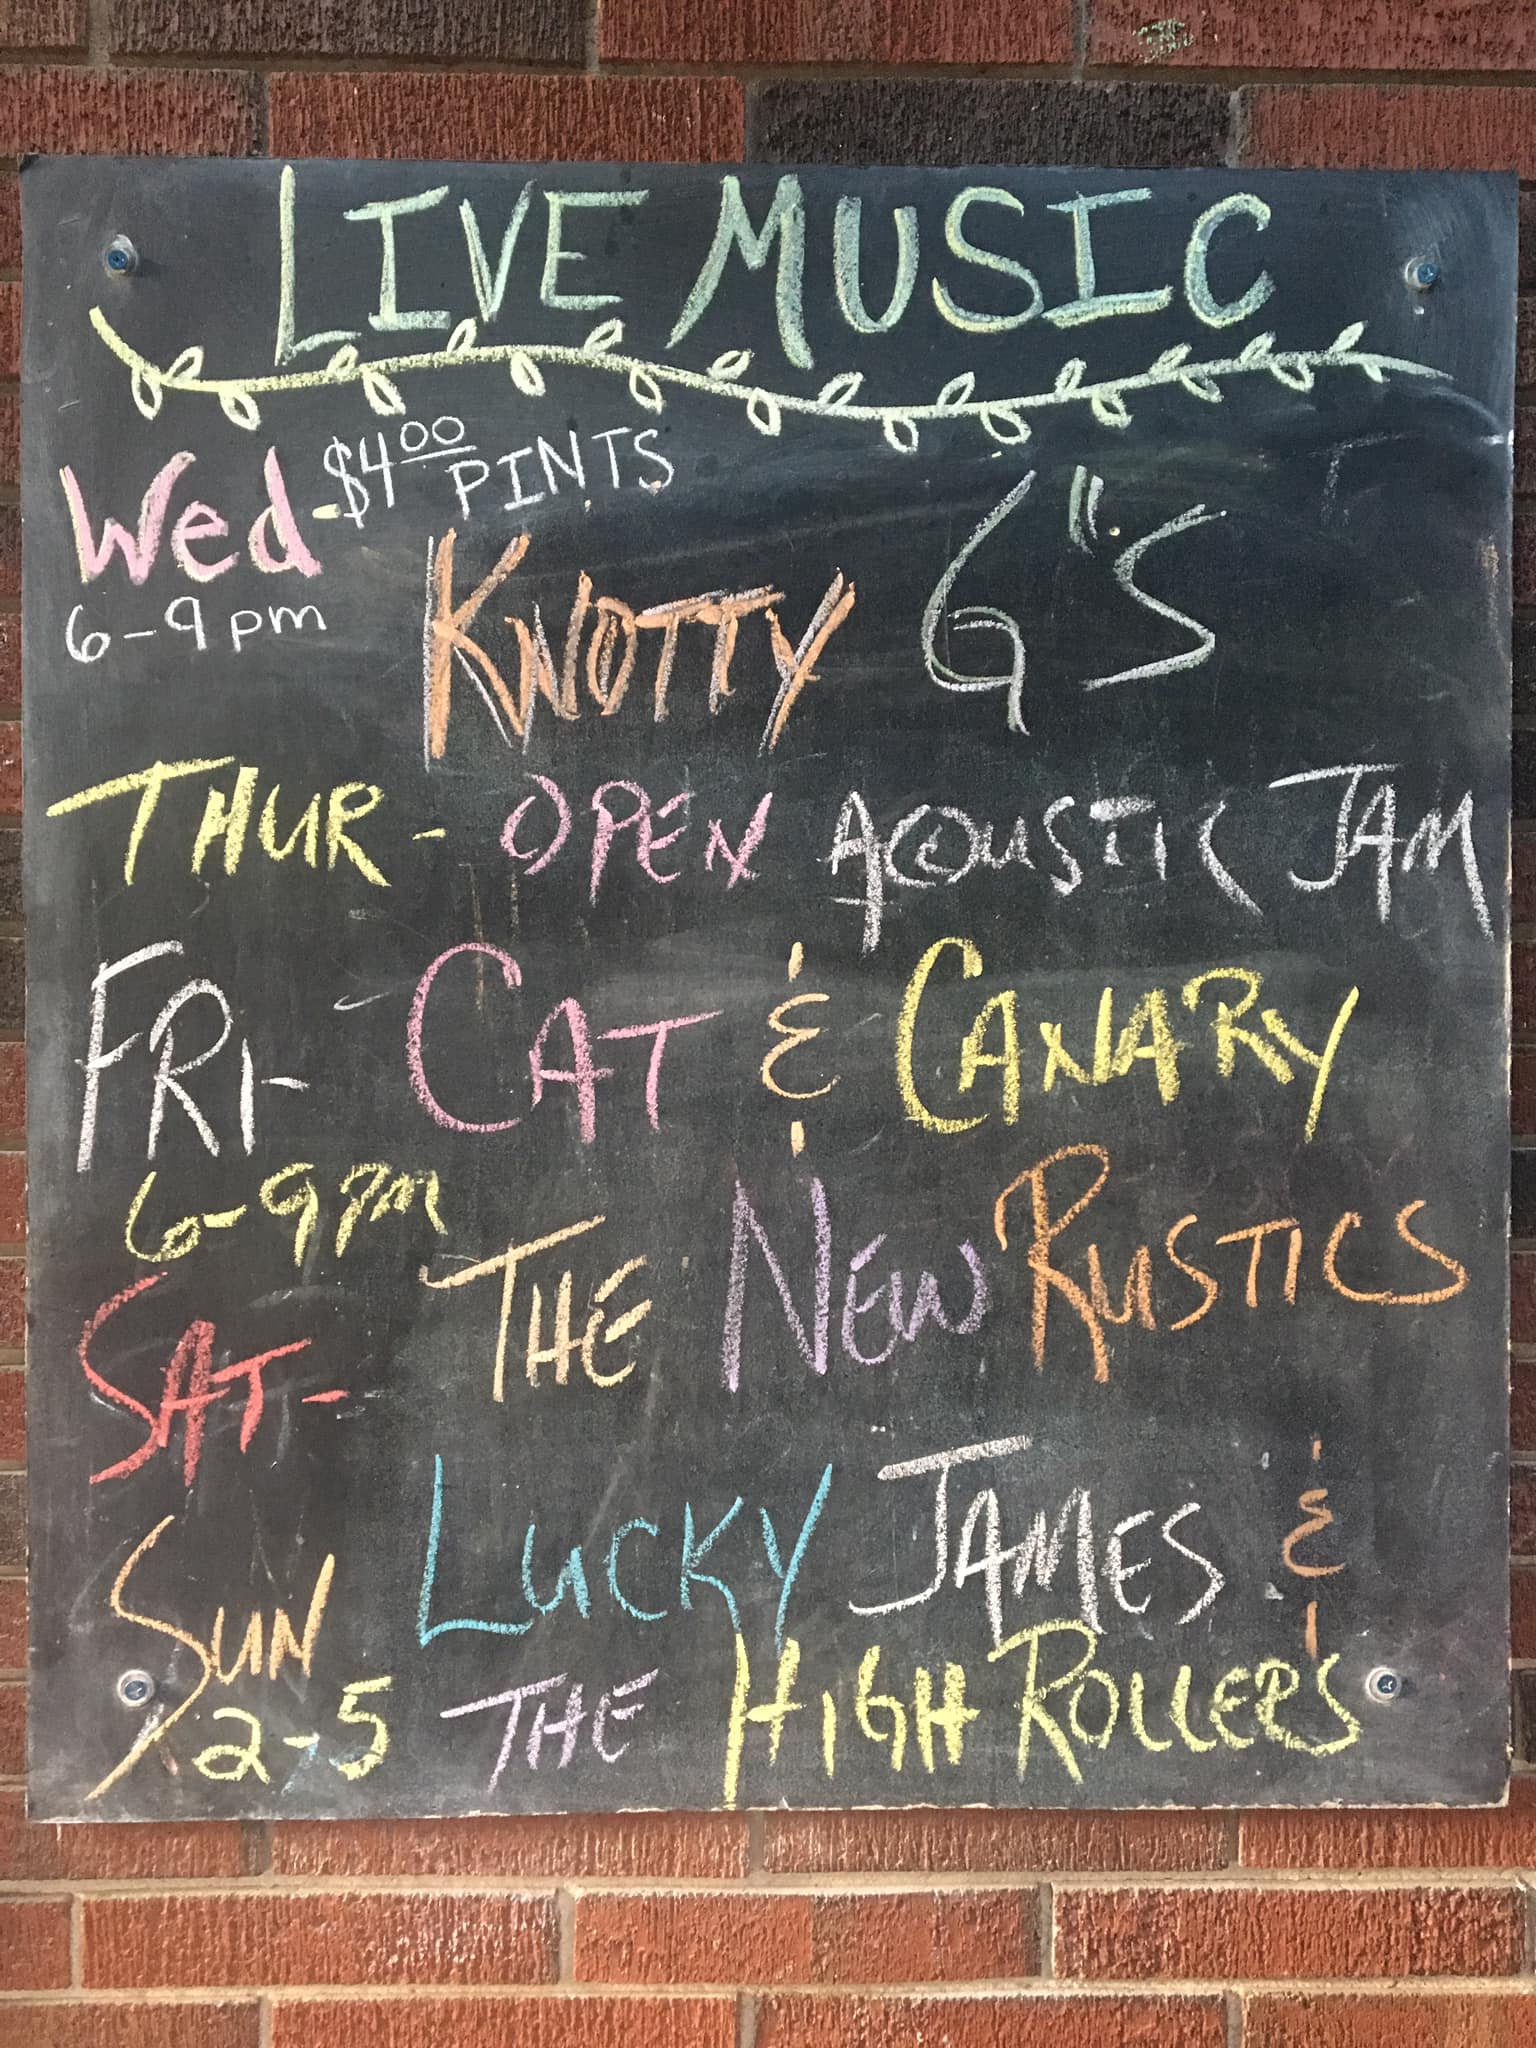 LIVE MUSIC
Wed - $4.00 PINTS
6-9pm KNOTTY G"S
THUR - OPEN ACOUSTIC JAM
FRI- CAT & CANARY
6-9PM
SAT- THE NEW RUSTICS
SUN LUCKY JAMES &
2-5 THE HIGH ROLLERS